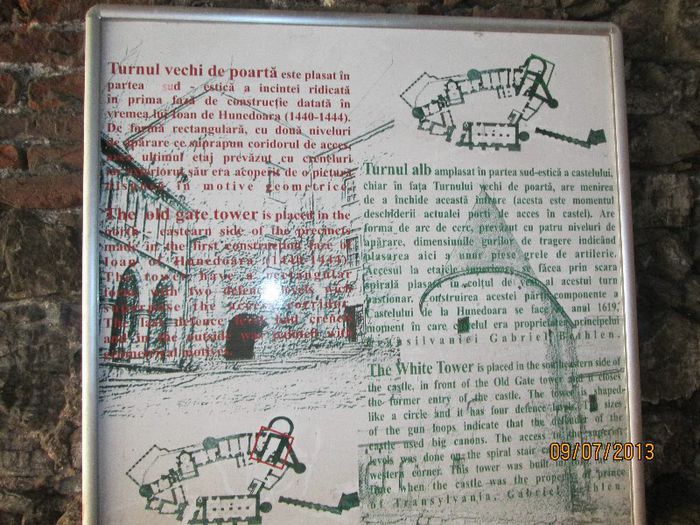 Turnul vechi de poartă este plasat în
partea sud estică a incintei ridicată
în prima fază de construcție datată în
vremea lui Ioan de Hunedoara (1440-1444).
De formă rectangulară, cu două niveluri
de apărare ce suprapun coridorul de acces,
ultimul etaj prevăzut cu creneluri
exteriorul său era acoperit de o pictură
în motive geometrice
The old gate tower is placed in the
north eastearn side of the precincts
made in the first construction faze of
Ioan of Hunedoara (1440-1444).
The tower have a rectangular
form with two defence levels wich
superpose the acces corridor.
The last defence level had crenels
and in the outside was painted with
geometrical motives.
Turnul alb amplasat în partea sud-estică a castelului,
chiar în fața Turnului vechi de poartă, are menirea
de a închide această intrare (acesta este momentul
deschiderii actualei porți de acces în castel). Are
forma de arc de cerc, prevăzut cu patru niveluri de
apărare, dimensiunile gurilor de tragere indicând
plasarea aici a unor piese grele de artilerie.
Accesul la etajele se făcea prin scara
spirală plasată în colțul de vest al acestui turn
bastionar, construirea acestei părți componente a
Castelului de la Hunedoara se face în anul 1619,
moment în care castelul era proprietatea principelui
Transilvaniei Gabriel Bethlen.
The White Tower is placed in the southeastern side of
the castle, in front of the Old Gate tower and it closes
the former entry of the castle. The tower is shaped
like a circle and it has four defence levels. The sizes
of the gun loops indicate that the defender of the
castle used big canons. The access to the superior
levels was done on the spiral stair
western corner. This tower was built in the
time when the castle was the property of prince
of Transylvania, Gabriel Bethlen.
09/07/2013